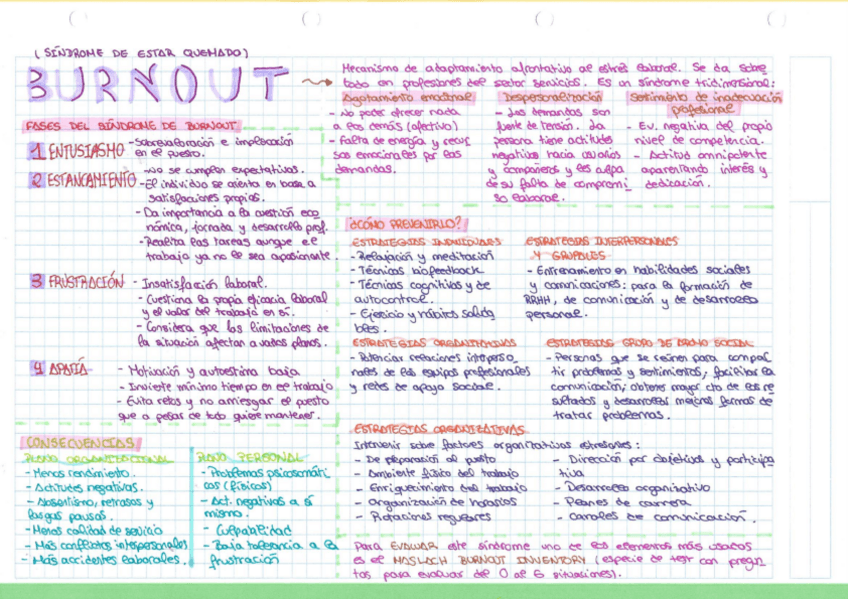 (SÍNDROME DE ESTAR QUEMADO)
BURNOUT
Mecanismo de adaptamiento afrontativo al estrés laboral. Se da sobre
todo en profesiones del sector servicios. Es un síndrome tridimensional:
Agotamiento emocional
- No poder ofrecer nada
a los demás (afectivo)
- Falta de energía y recur
sos emocionales por las
demandas.
Despersonalización
- Las demandas son
fuente de tensión. La
persona tiene actitudes
negativas hacia usuarios
y compañeros y les culpa
de su falta de compromi
so laboral.
Sentimiento de inadecuación
profesional
- Ev. negativa del propio
nivel de competencia.
- Actitud omnipotente
aparentando interés y
dedicación.
FASES DEL SÍNDROME DE BURNOUT
1 ENTUSIASMO
- Sobrevaloración e implicación
en el puesto.
2 ESTANCAMIENTO
- No se cumplen expectativas.
- El individuo se orienta en base a
satisfacciones propias.
- Da importancia a la cuestión eco
nómica, jornada y desarrollo prof.
- Realiza las tareas aunque el
trabajo ya no le sea apasionante.
3 FRUSTRACIÓN
- Insatisfacción laboral.
- Cuestiona la propia eficacia laboral
y el valor del trabajo en sí.
- Considera que las limitaciones de
la situación afectan a varios planos.
4 APATÍA
- Motivación y autoestima baja
- Invierte mínimo tiempo en el trabajo
- Evita retos y no arriesgar el puesto
que a pesar de todo quiere mantener.
CONSECUENCIAS
PLANO ORGANIZACIONAL
- Menos rendimiento.
- Actitudes negativas.
- Absentismo, retrasos y
largas pausas.
- Menos calidad de servicio
- Más conflictos interpersonales
- Más accidentes laborales.
PLANO PERSONAL
- Problemas psicosomáti
cos (físicos)
- Act. negativas a sí
mismo.
- Culpabilidad
- Baja tolerancia a la
frustración
¿CÓMO PREVENIRLO?
ESTRATEGIAS INDIVIDUALES
- Relajación y meditación
- Técnicas biofeedback
- Técnicas cognitivas y de
autocontrol.
- Ejercicio y hábitos saluda
bles.
ESTRATEGIAS INTERPERSONALES
Y GRUPALES
- Entrenamiento en habilidades sociales
y comunicaciones: para la formación de
RRHH, de comunicación y de desarrollo
personal.
ESTRATEGIAS ORGANIZATIVAS
- Potenciar relaciones interperso
nales de los equipos profesionales
y redes de apoyo social.
ESTRATEGIAS GRUPO DE APOYO SOCIAL
- Personas que se reúnen para compar
tir problemas y sentimientos, facilitar la
comunicación, obtener mayor cto de los re
sultados y desarrollar mejores formas de
tratar problemas.
ESTRATEGIAS ORGANIZATIVAS
Intervenir sobre factores organizativos estresores:
- De preparación al puesto
- Ambiente físico del trabajo
- Enriquecimiento del trabajo
- Organización de horarios
- Rotaciones regulares
- Dirección por objetivos y participa
tiva
- Desarrollo organizativo
- Planes de carrera
- Canales de comunicación.
Para EVALUAR este síndrome uno de los elementos más usados
es el MASLACH BURNOUT INVENTORY (especie de test con pregun
tas para evaluar del 0 al 6 situaciones).